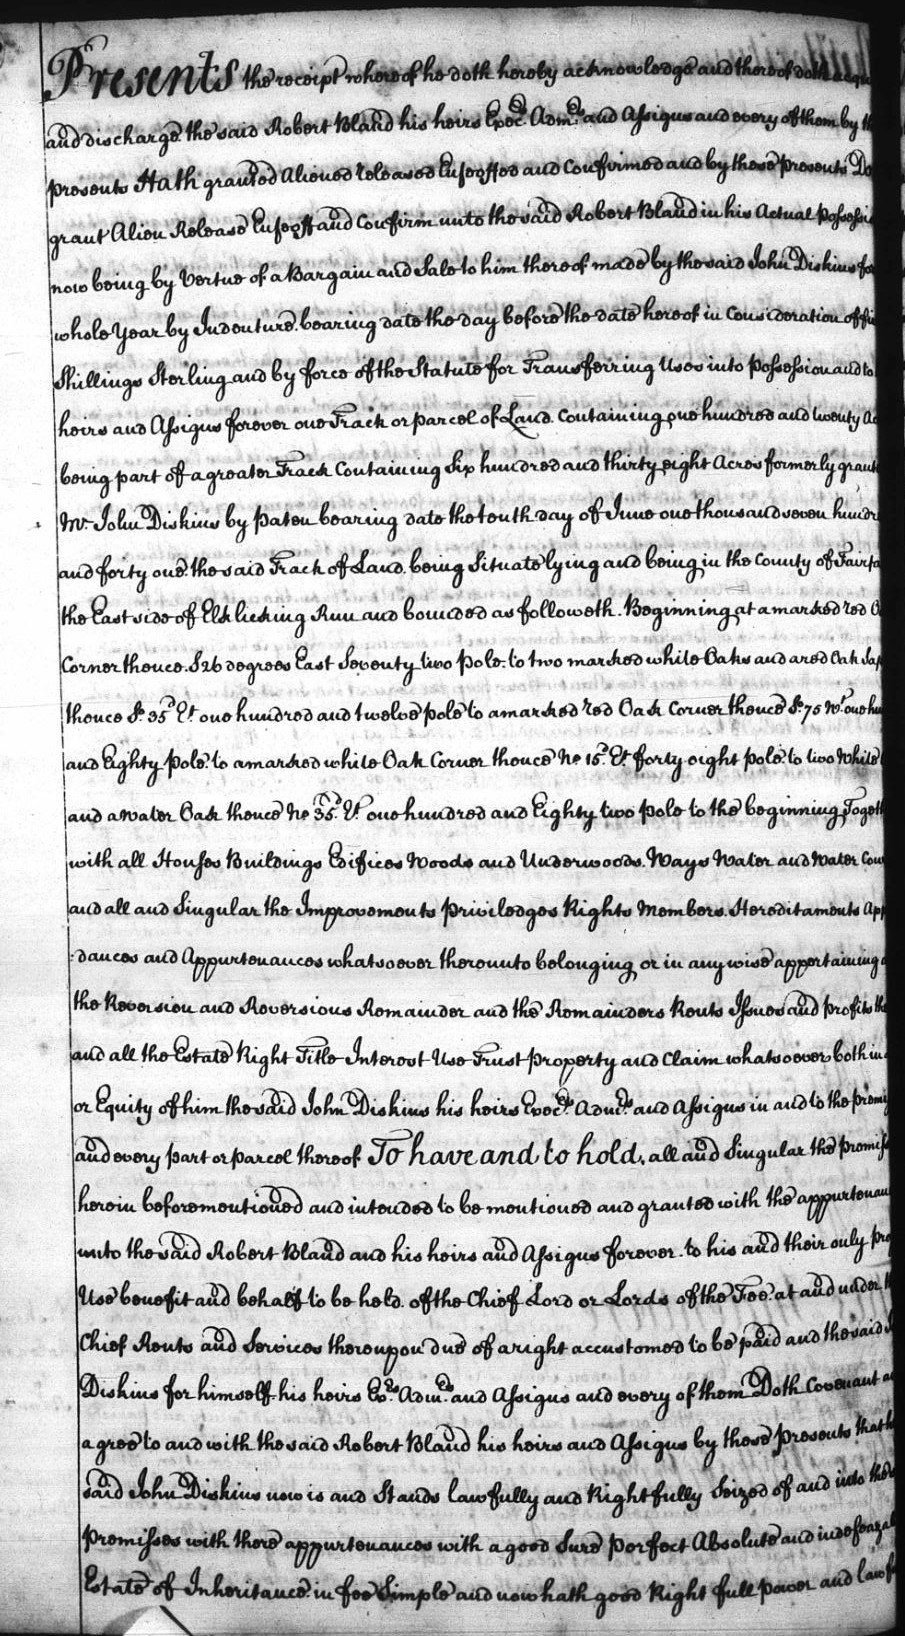 Presents the receipt whereof he doth hereby acknowledge and thereof doth acqu
and discharge the said Robert Bland his heirs Execrs. Admrs. and Assigns and every of them by th
presents Hath granted Aliened released Enfeoffed and Confirmed and by these presents Do
grant Alien Release Enfeoff and Confirm unto the said Robert Bland in his Actual possessi
now being by Vertue of a Bargain and Sale to him thereof made by the said John Diskins fo
whole Year by Indenture bearing date the day before the date hereof in Consideration of fi
Shillings Sterling and by force of the Statute for Transferring Uses into possession and to
heirs and Assigns forever one Track or parcel of Land Containing one hundred and twenty Ac
being part of a greater Track Containing Six hundred and thirty eight Acres formerly grant
Mr. John Diskins by paten bearing date the tenth day of June one thousand seven hundr
and forty one the said Track of Land being Situate lying and being in the County of Fairfa
the East side of Elk licking Run and bounded as followeth. Beginning at a marked red O
Corner thence S26 degrees East Seventy two pole to two marked white Oaks and a red Oak Sap
thence So. 35d. Et. one hundred and twelve pole to a marked red Oak Corner thence So. 75 Wt. one hu
and Eighty pole to a marked white Oak Corner thence No 15d. Et. forty eight pole to two White
and a water Oak thence No 35d. Et. one hundred and Eighty two pole to the beginning Togeth
with all Houses Buildings Edifices Woods and Underwoods Ways Water and Water Cou
and all and Singular the Improvements priviledges Rights Members Hereditaments App
:dances and Appurtenances whatsoever thereunto belonging or in any wise appertaining
the Reversion and Reversions Remainder and the Remainders Rents Issues and profits the
and all the Estate Right Title Interest Use Trust property and Claim whatsoever both in
or Equity of him the said John Diskins his heirs Execrs. Admrs. and Assigns in and to the premi
and every part or parcel thereof To have and to hold, all and Singular the premise
herein beforementioned and intended to be mentioned and granted with the appurtenan
unto the said Robert Bland and his heirs and Assigns forever to his and their only pro
Use benefit and behalf to be held of the Chief Lord or Lords of the Fee at and under th
Chief Rents and Services thereupon due of a right accustomed to be paid and the said
Diskins for himself his heirs Exrs. Admrs. and Assigns and every of them Doth Covenant a
agree to and with the said Robert Bland his heirs and Assigns by these presents that h
said John Diskins now is and Stands lawfully and Rightfully Seized of and into the
premisses with there appurtenances with a good Sure perfect Absolute and indefeazab
Estate of Inheritance in fee Simple and now hath good Right full power and lawf